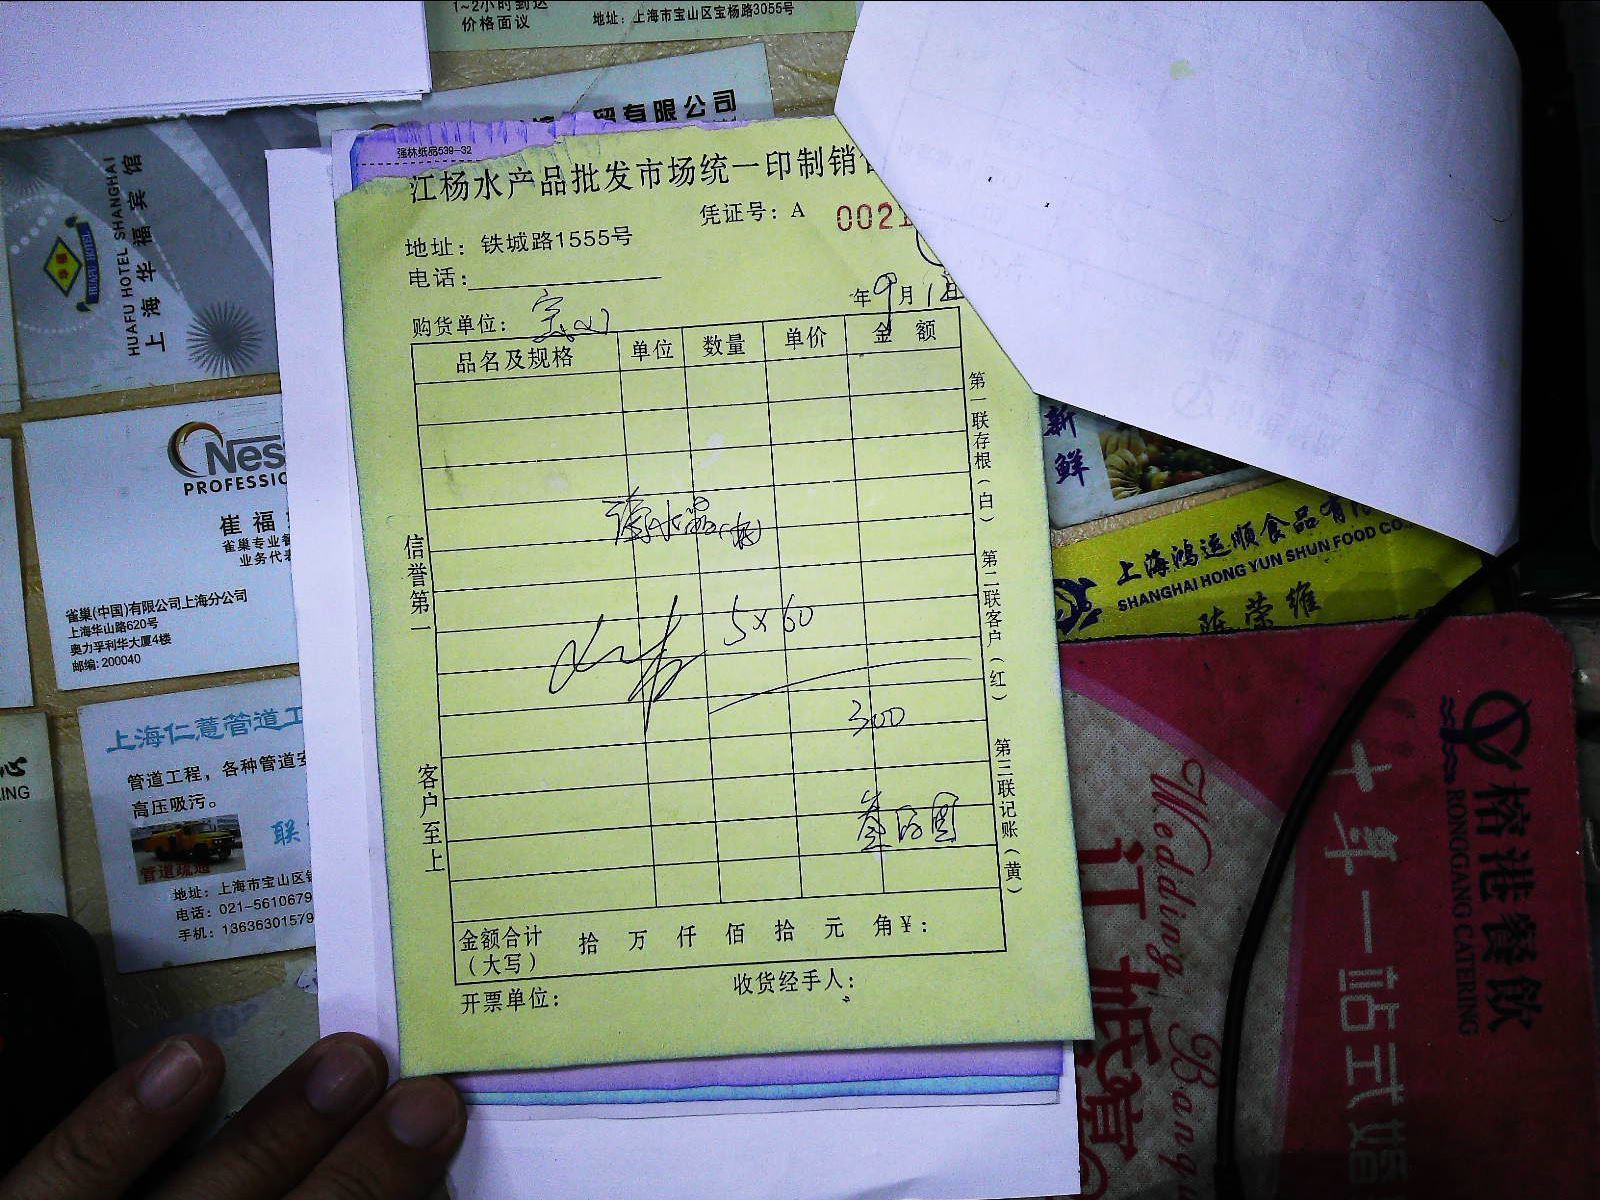 1~2小时到达
价格面议
地址：上海市宝山区宝杨路3055号
贸有限公司
强林纸品539-32
江杨水产品批发市场统一印制销
凭证号：A 0021
地址：铁城路1555号
电话：
年9月1日
购货单位：
品名及规格 单位 数量 单价 金额
5×60
300
金额合计（大写） 拾 万 仟 佰 拾 元 角 ¥：
开票单位： 收货经手人：
信誉第一
客户至上
第一联存根（白）
第二联客户（红）
第三联记账（黄）
HUAFU HOTEL SHANGHAI
上海华福宾馆
HUAFU HOTEL
Nes
PROFESSIO
崔福
雀巢专业餐
业务代表
雀巢(中国)有限公司上海分公司
上海华山路620号
奥力孚利华大厦4楼
邮编: 200040
心
ING
上海仁薏管道工
管道工程，各种管道安
高压吸污。
联
管道疏通
地址：上海市宝山区
电话：021-5610679
手机：13636301579
新鲜
上海鸿运顺食品有
SHANGHAI HONG YUN SHUN FOOD CO.
陈荣维
榕港餐饮
RONGGANG CATERING
十年一站式婚
Wedding Banq
订抵